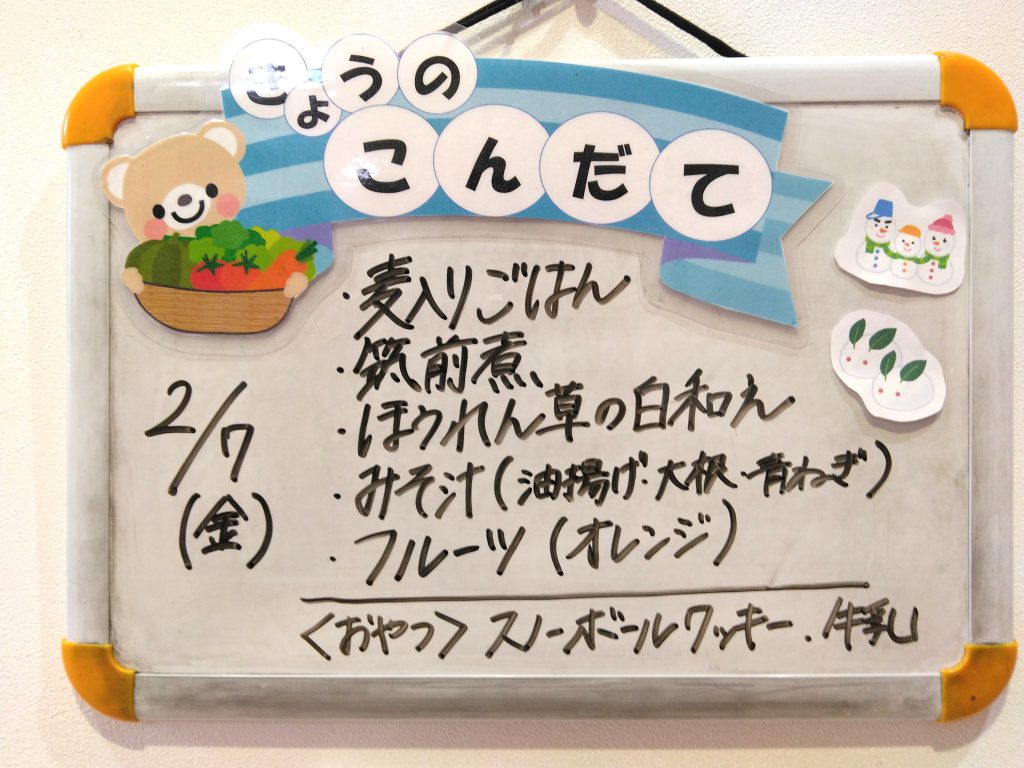 きょうの
こんだて
2/7
(金)
・麦入りごはん
・筑前煮
・ほうれん草の白和え
・みそ汁(油揚げ・大根・青ねぎ)
・フルーツ(オレンジ)
<おやつ> スノーボールクッキー・牛乳